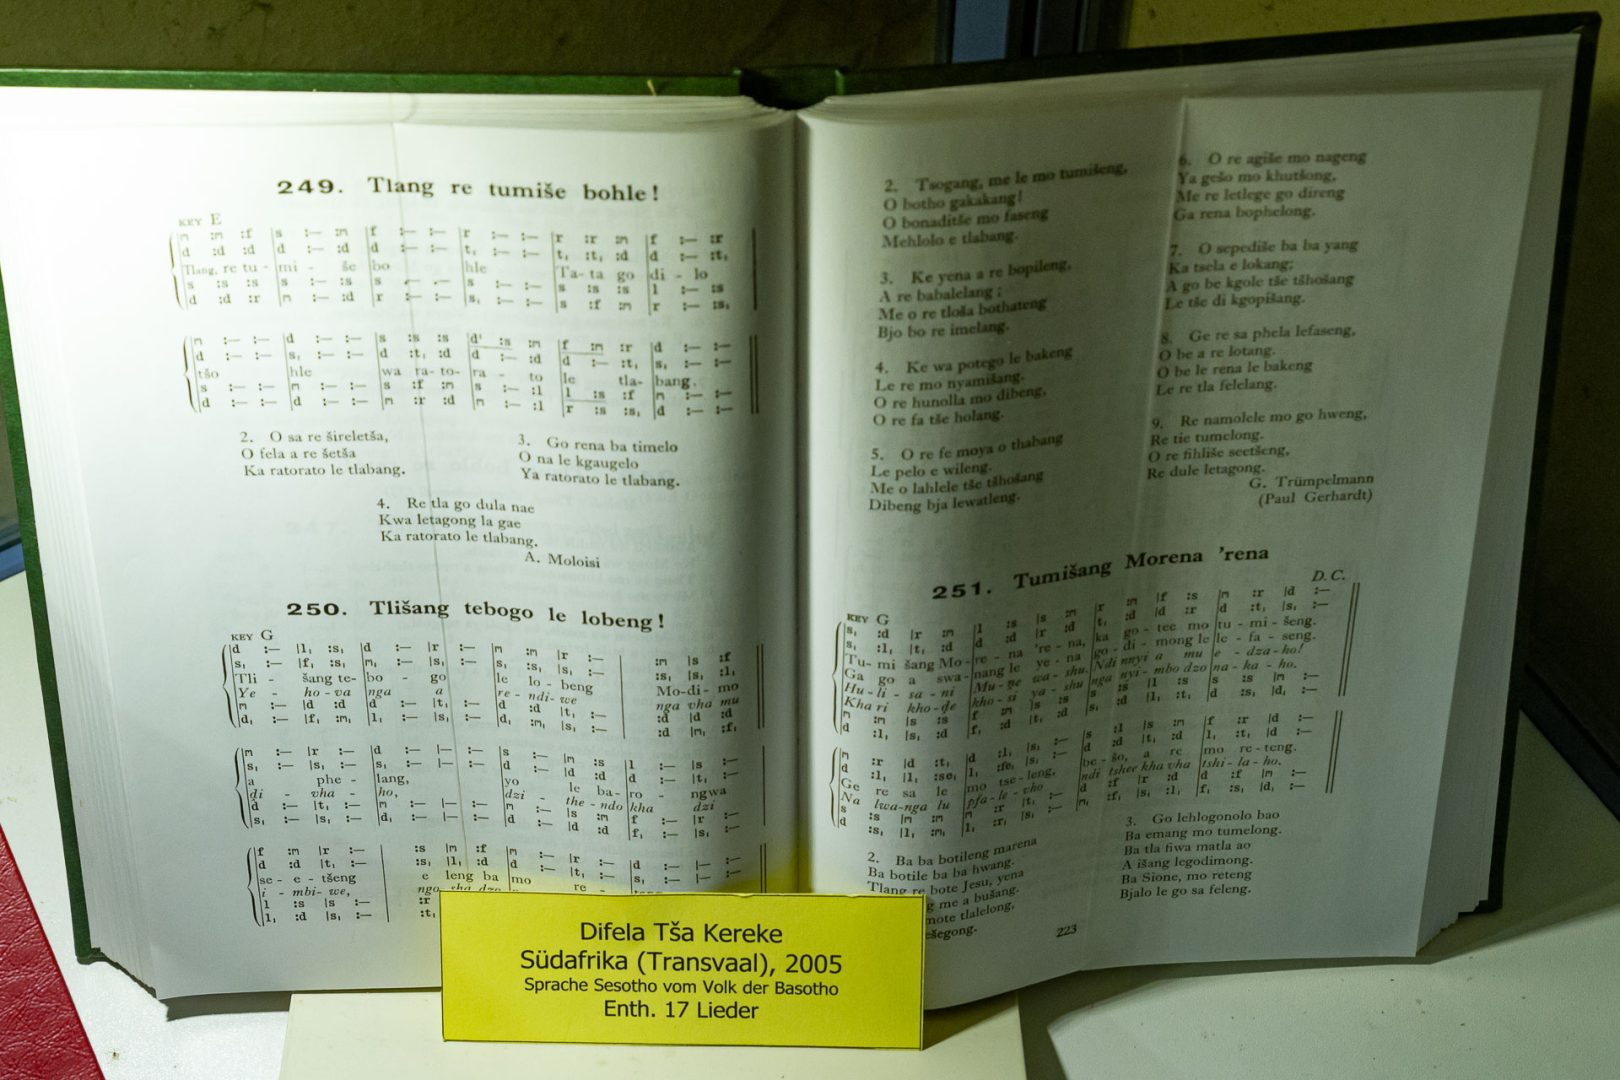 249. Tlang re tumiše bohle!
KEY E
m :m :f | s :— :m | f :— :— | r :— :— | r :r :m | f :— :r
d :d :d | d :— :d | d :— :— | t, :— :— | t, :t, :d | d :— :t,
Tlang, re tu - mi - še bo hle Ta- ta go di - lo
s :s :s | s :— :s | s :— :— | s :— :— | s :s :s | l :— :s
d :d :r | m :— :d | r :— :— | s, :— :— | s :f :m | r :— :s,
m :— :— | d :— :— | s :s :s | d' :s :m | f :m :r | d :— :—
d :— :— | s, :— :— | d :t, :d | d :— :d | d :— :t, | s, :— :—
tšo hle wa ra- to- ra - to le tla- bang.
s :— :— | m :— :— | s :f :m | s :— :l | l :s :f | m :— :—
d :— :— | d :— :— | m :r :d | m :— :l | r :s :s, | d :— :—
2. O sa re šireletša,
O fela a re šetša
Ka ratorato le tlabang.
3. Go rena ba timelo
O na le kgaugelo
Ya ratorato le tlabang.
4. Re tla go dula nae
Kwa letagong la gae
Ka ratorato le tlabang.
A. Moloisi
250. Tlišang tebogo le lobeng!
KEY G
d :— |l, :s, |d :— |r :— |m :m |r :— | :m |s :f
s, :— |f, :s, |m, :— |s, :— |s, :s, |s, :— | :s, |s, :l,
Tli - šang te- bo - go le lo - beng Mo-di- mo
Ye - ho-va nga a re - ndi-we nga vha mu
m :— |d :d |d :— |t, :— |d :d |t, :— | :d |d :d
d, :— |f, :m, |l, :— |s, :— |d, :m, |s, :— | :d |m, :f,
m :— |r :— |d :— |— :— |s :— |m :s |l :— |s :—
s, :— |s, :— |s, :— |— :— |d :— |d :d |d :— |t, :—
a phe - lang, yo le ba- ro - ngwa
ḓi - vha - ho, dzi - the - ndo kha dzi
d :— |t, :— |m :— |— :— |m :— |s :m |f :— |r :—
s, :— |s, :— |d, :— |— :— |d :— |d :d |f, :— |s, :—
f :m |r :— | :s |m :f |m :— |r :— |d :— |— :—
d :d |t, :— | :s, |l, :d |d :— |t, :— |s, :— |— :—
se- e - tšeng e leng ba mo re -
i - mbi- we, ngo
l :s |s :— | :r
l, :d |s, :— | :t,
2. Tsogang, me le mo tumišeng,
O botho gakakang!
O bonaditše mo faseng
Mehlolo e tlabang.
3. Ke yena a re bopileng,
A re babalelang;
Me o re tloša bothateng
Bjo bo re imelang.
4. Ke wa potego le bakeng
Le re mo nyamišang.
O re hunolla mo dibeng,
O re fa tše holang.
5. O re fe moya o thabang
Le pelo e wileng.
Me o lahlele tše tšhošang
Dibeng bja lewatleng.
6. O re agiše mo nageng
Ya gešo mo khutšong,
Me re letlege go direng
Ga rena bophelong.
7. O sepediše ba ba yang
Ka tsela e lokang;
A go be kgole tše tšhošang
Le tše di kgopišang.
8. Ge re sa phela lefaseng,
O be a re lotang.
O be le rena le bakeng
Le re tla felelang.
9. Re namolele mo go hweng,
Re tie tumelong.
O re fihliše seetšeng,
Re dule letagong.
G. Trümpelmann
(Paul Gerhardt)
251. Tumišang Morena 'rena
D. C.
KEY G
s, :d |r :m |l :s |s :m |r :m |f :s |m :r |d :—
s, :l, |t, :d |d :d |r :d |t, :d |d :r |d :t, |s, :—
Tu- mi šang Mo- re - na 're-na, ka go - tee mo tu - mi - šeng.
Ga go a swa-nang le ye - na go - di - mong le le - fa - seng.
Hu - li - sa - ni Mu-ṋe wa-shu. Ndi nnyi a mu e - dza-ho!
Kha ri kho-ḓe kho-si ya-shu nga nyi-mbo dzo na - ka - ho.
2. Ba ba botileng marena
Ba botile ba ba hwang.
Tlang re bote Jesu, yena
g me a bušang.
mote tlalelong,
ešegong.
3. Go lehlogonolo bao
Ba emang mo tumelong.
Ba tla fiwa matla ao
A išang legodimong.
Ba Sione, mo reteng
Bjalo le go sa feleng.
223
Difela Tša Kereke
Südafrika (Transvaal), 2005
Sprache Sesotho vom Volk der Basotho
Enth. 17 Lieder